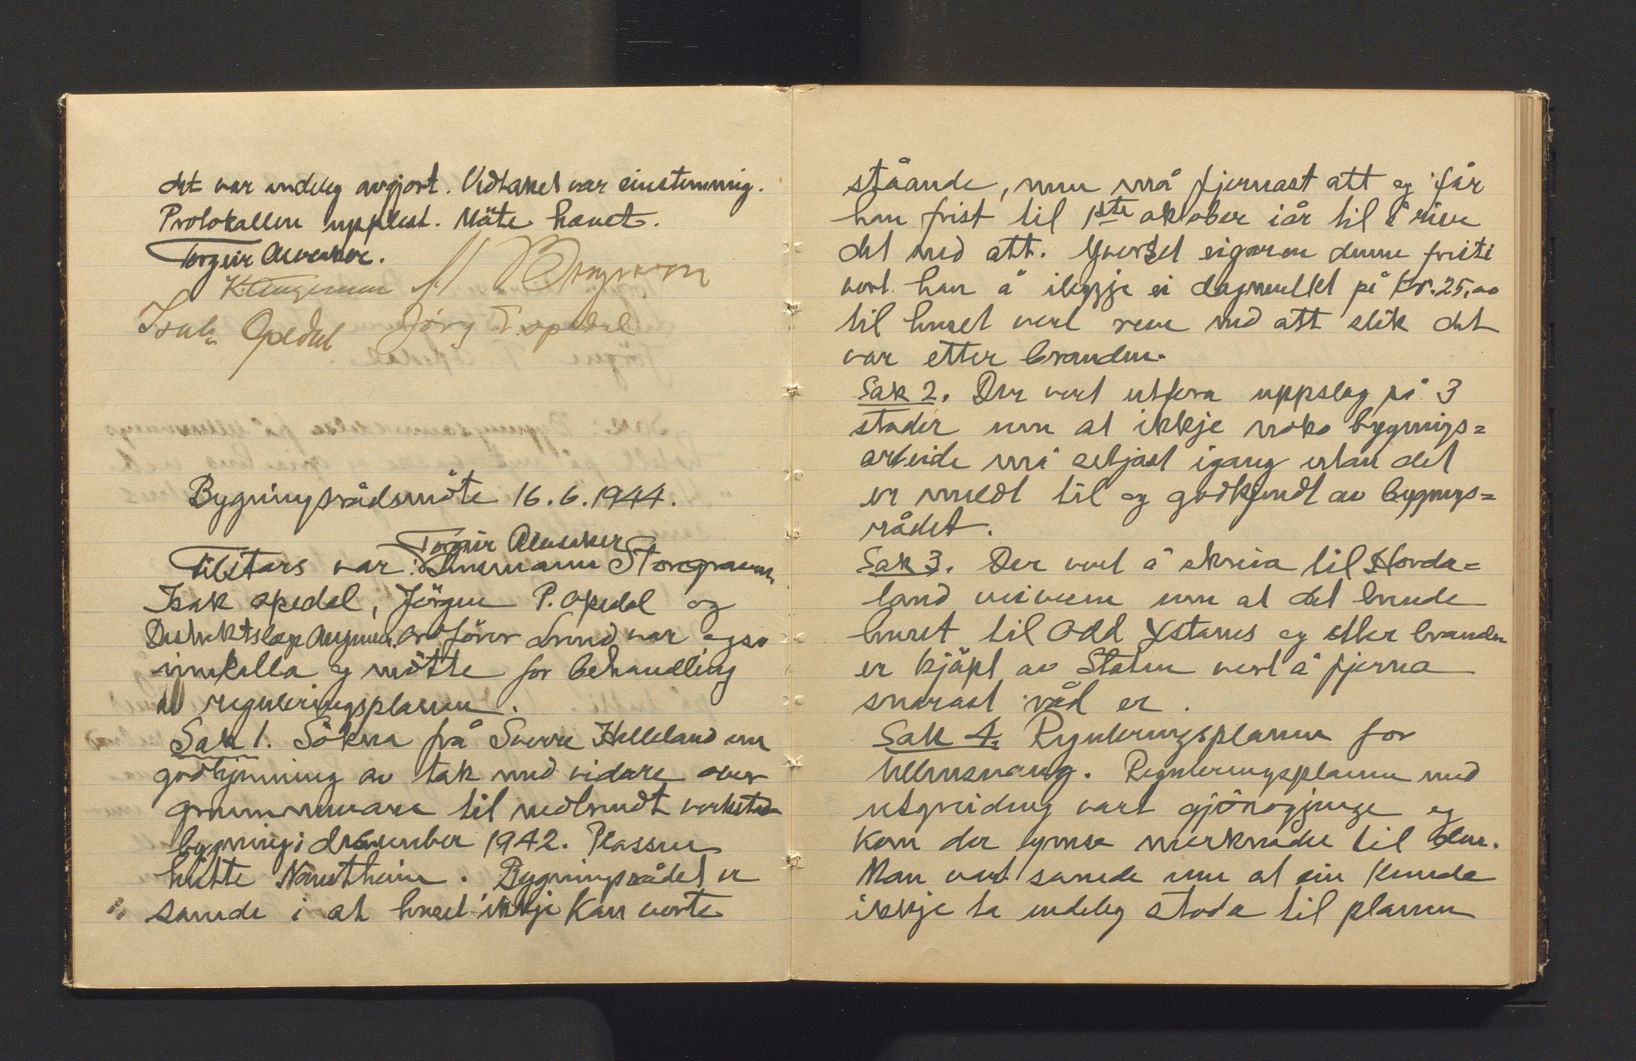 det var endeleg avgjort. Vidtaket var einstemmig.
Protokollen upplest. Møte hevet.
Torgeir Alvsaker.
Isak Opedal Jörg P. opedal
Bygningsrådsmöte 16.6.1944.
Torgeir Alvsaker
Tilstades var: Lensmann Storegraven,
Isak opedal, Jörgen P. opedal og
Distriktslege Augensen. Ordförer Lund var ogso
innkalla og mötte for behandling
av reguleringsplanen.
Sak 1. Sökna frå Sverre Helleland um
godkjenning av tak med vidare over
grunnmurane til nedbrendt verksted
bygning i desember 1942. Plassen
heitte Naustheim. Bygningsrådet er
samde i at huset ikkje kan verte
ståande, men må fjernast att og får
han frist til 1ste oktober iår til å rive
det ned att. Yversit eigaren denne fristi
vert han å ileggje ei dagmulkt på Kr. 25,00
til huset vert reve ned att slik det
var etter branden.
Sak 2. Der vert utfera uppslag på 3
stader um at ikkje noko bygnings=
arbeide må setjast igang utan det
er meldt til og godkjendt av bygnings=
rådet.
Sak 3. Der vert å skriva til Horda=
land veivesen um at det brende
huset til Odd Ystanes og etter branden
er kjöpt av Staten vert å fjerna
snarast råd er.
Sak 4. Reguleringsplanen for
Ullensvang. Reguleringsplanen med
utgreiding vart gjönogjenge og
kom der ymse merknader til den.
Man vart samde um at ein kunde
ikkje ta endeleg stode til planen